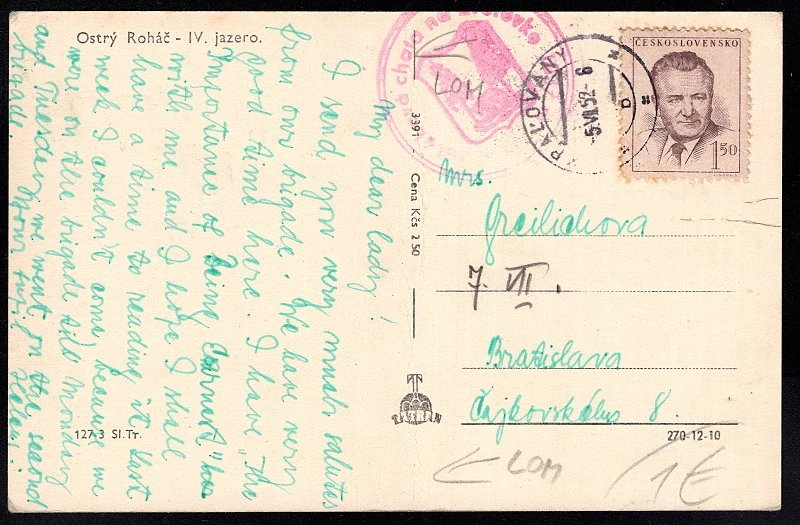 Ostrý Roháč - IV. jazero.
My dear lady!
I send you very much salutes
from our brigade. We have very
good time here. I have "the
Importance of Being Earnest" has
with me and I hope I shall
have a time to reading it. Last
week I couldn't come because we
were on the brigade till Monday
and Tuesday we went on the second
brigade.
Your pupil
127-3 Sl.Tr.
3391 - Cena Kčs 2·50
TATRAN
chata na
LOM
KRAĽOVANY
-5.VII.52-6
ČESKOSLOVENSKO
1 50
Mrs.
Greilichova
7. VII.
Bratislava
Čajkovského 8.
270-12-10
LOM
1€